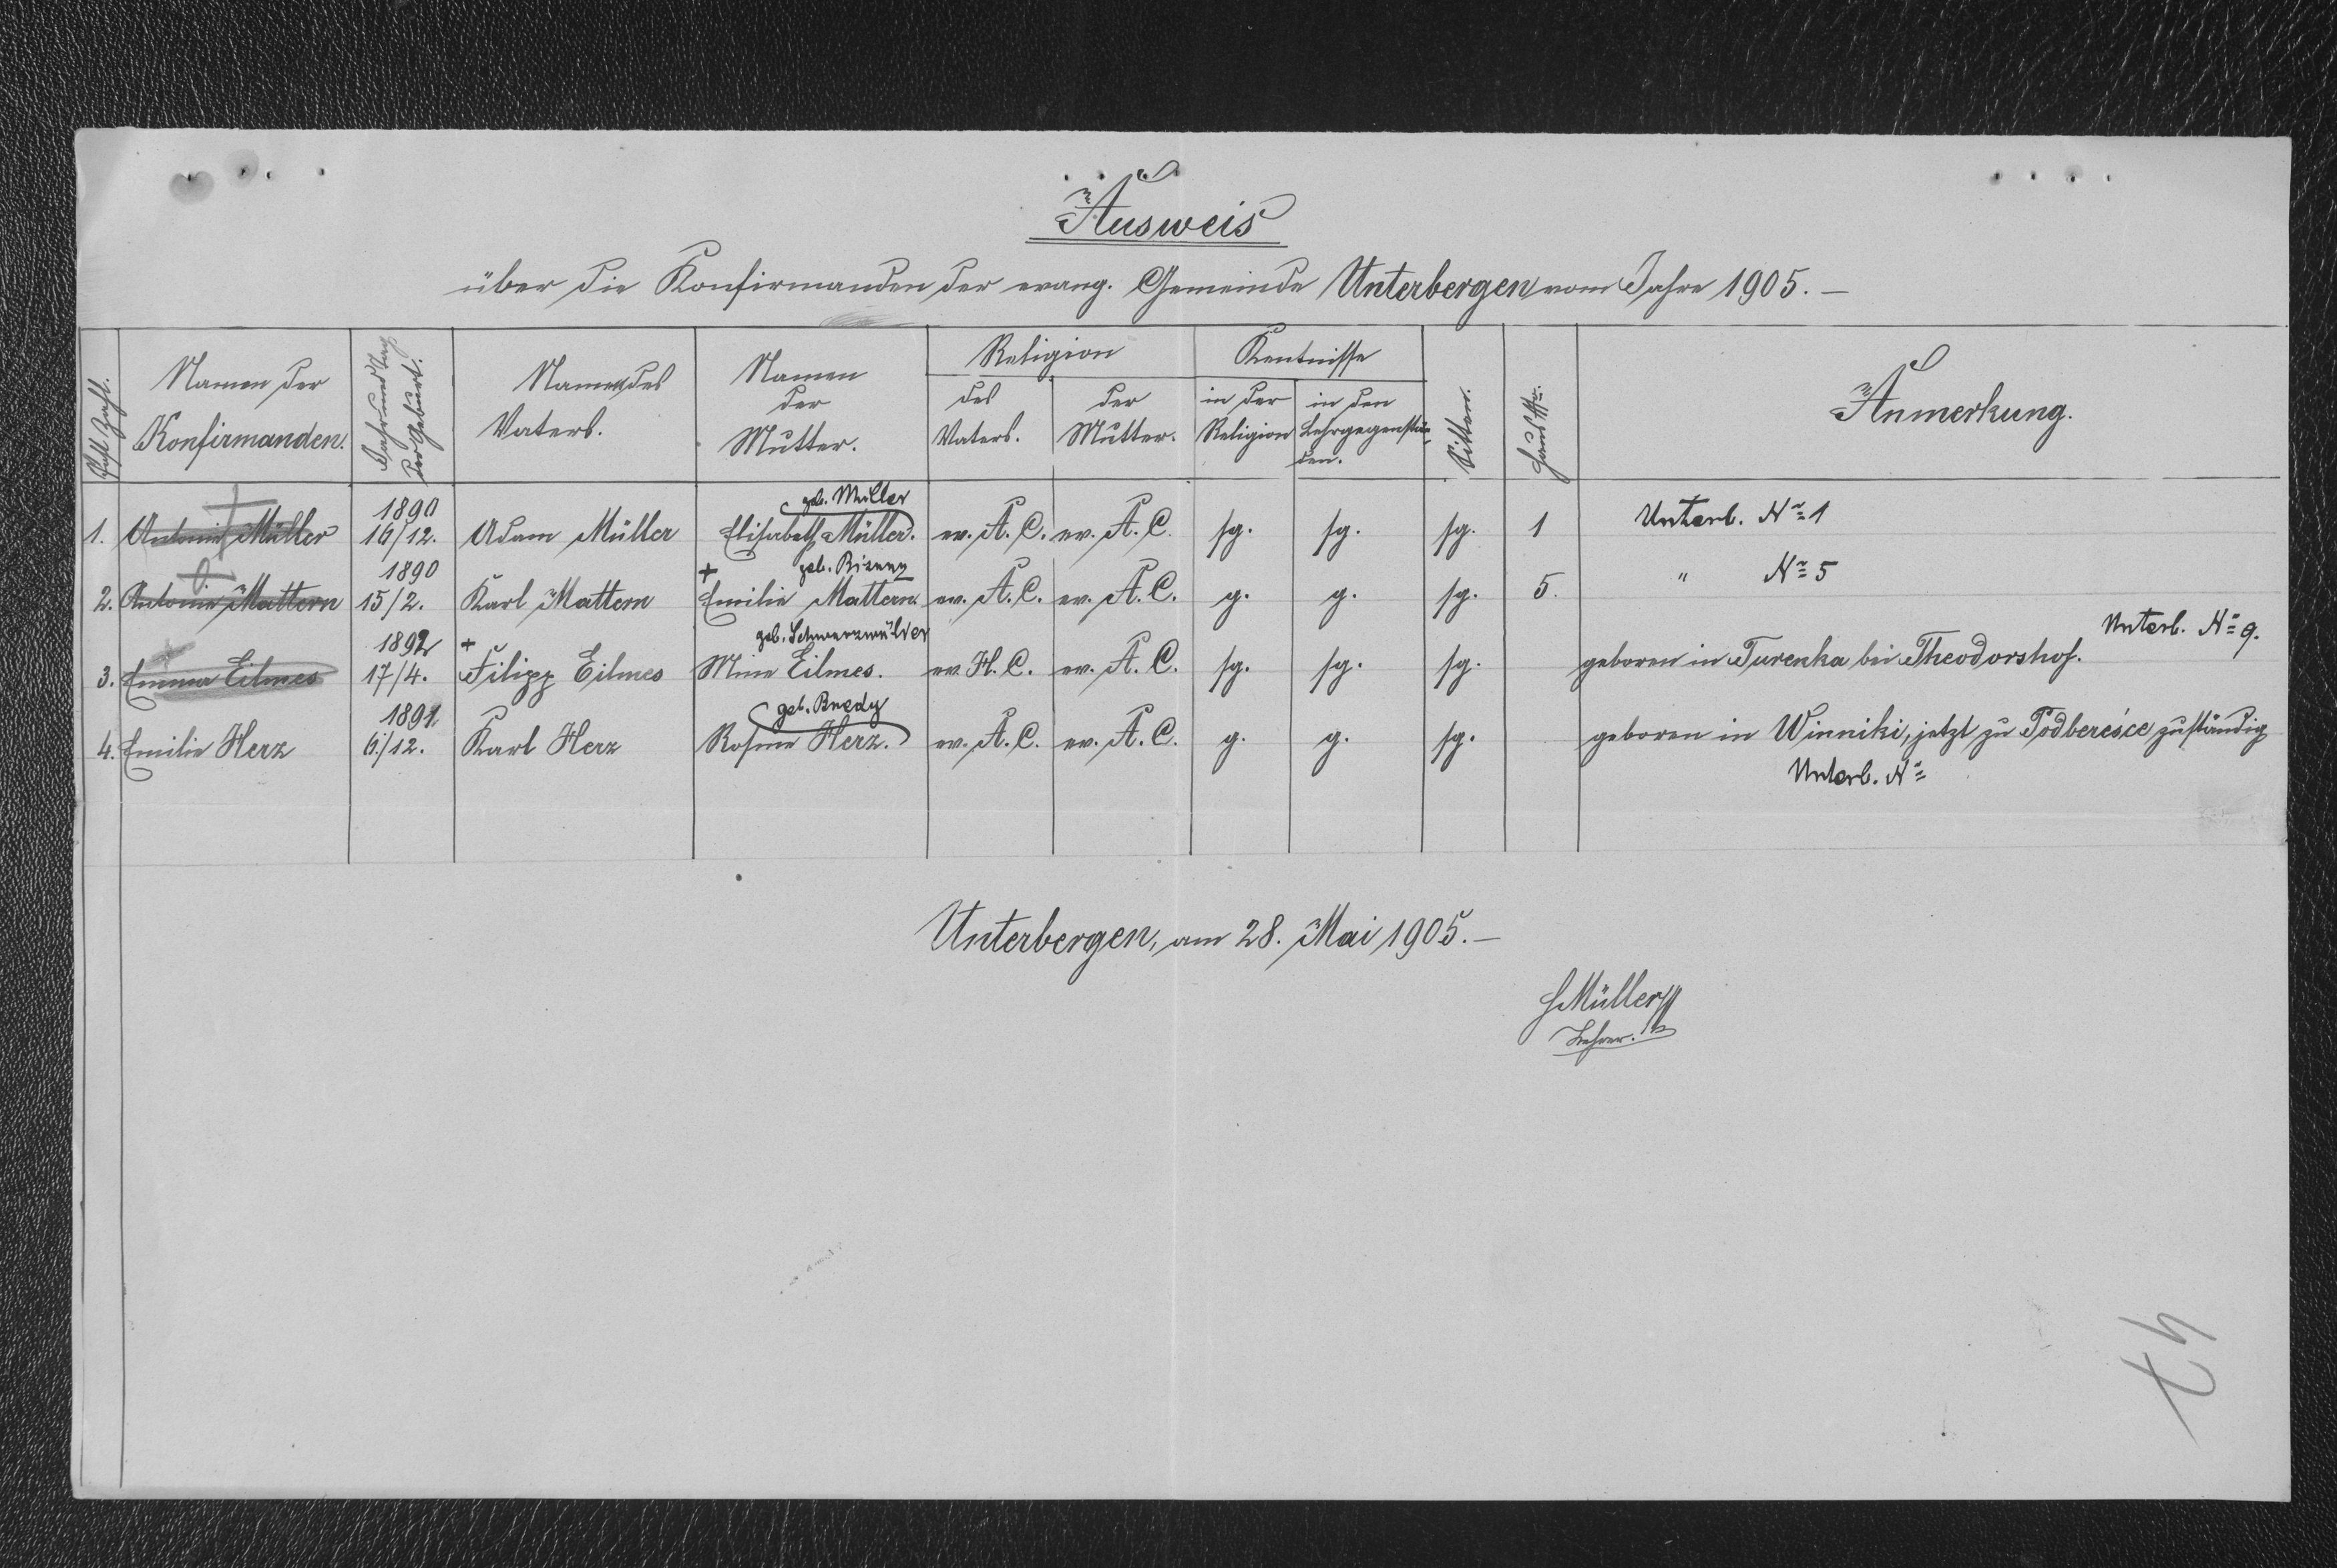 Ausweis
über die Konfirmanden der evang. Gemeinde Unterbergen vom Jahre 1905.—
Post-Zahl.
Namen der Konfirmanden.
Jahr und Tag der Geburt.
Namen des Vaters.
Namen der Mutter.
Religion
des Vaters.
der Mutter.
Kentnisse
in der Religion
in den Lehrgegenständen.
Sitten.
Haus Nr.
Anmerkung.
geb. Müller
1. Antonie Müller 1890 16/12. Adam Müller Elisabeth Müller. ev. A. C. ev. A. C. sg. sg. sg. 1 Unterb. Nr 1
geb. Bizeny
2. Antonie Mattern 1890 15/2. Karl Mattern + Emilie Mattern. ev. A. C. ev. A. C. g. g. sg. 5. " Nr 5
geb. Schwarzwälder
3. Emma Eilmes 1892 17/4. + Filipp Eilmes Mina Eilmes. ev. H. C. ev. A. C. sg. sg. sg. geboren in Turenka bei Theodorshof. Unterb. Nr 9.
geb. Bredy
4. Emilie Herz 1891 6/12. Karl Herz Rosina Herz. ev. A. C. ev. A. C. g. g. sg. geboren in Winniki, jetzt zu Podbereśce zuständig
Unterb. Nr
Unterbergen, am 28. Mai 1905.—
Müller
Lehrer.
47